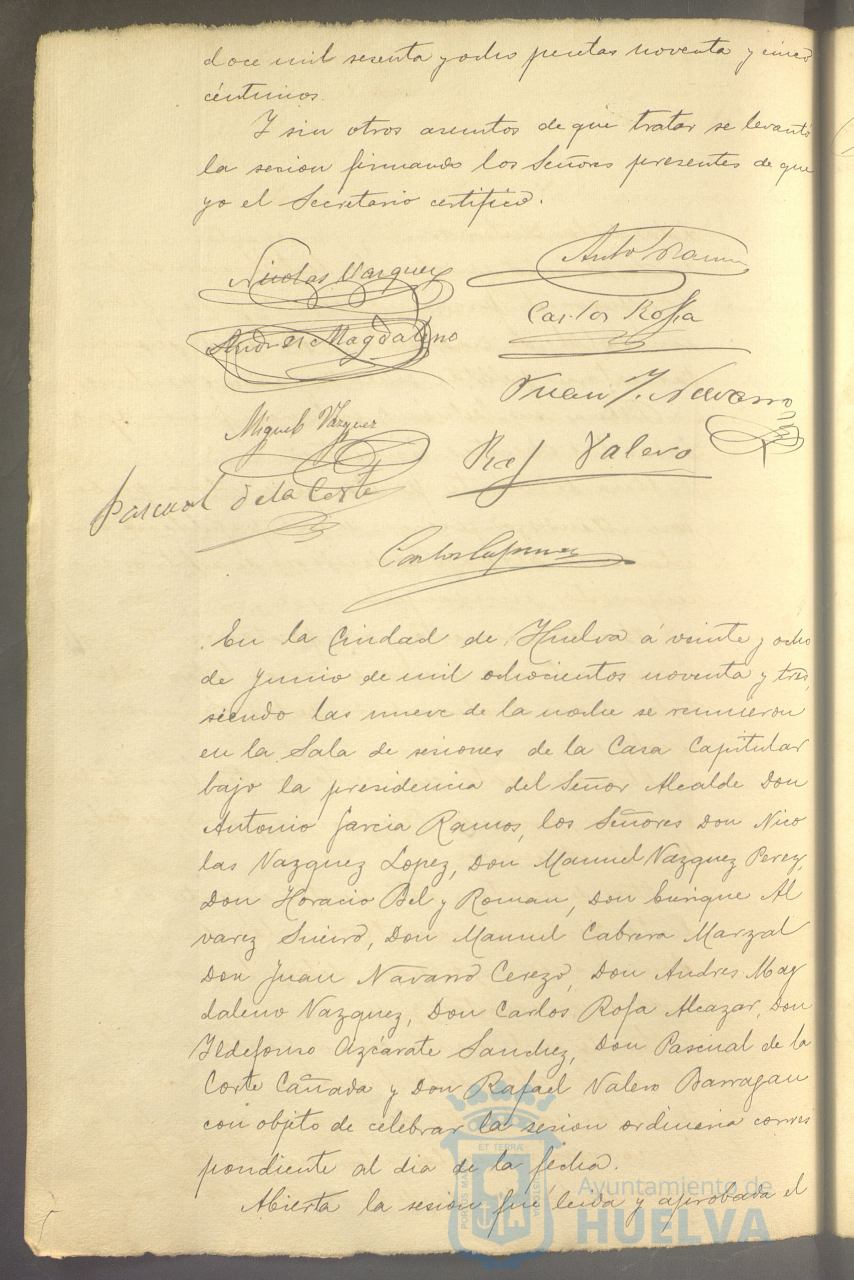 doce mil sesenta y ocho pesetas noventa y cinco
céntimos.
Y sin otros asuntos de que tratar se levantó
la sesion firmando los Señores presentes de que
yo el Secretario certifico.
Nicolas Vazquez
Anto Ramos
Carlos Rofa
Andres Magdaleno
Juan J. Navarro
Miguel Vazquez
Raf Valero
Pascual de la Corte
Carlos
En la Ciudad de Huelva á veinte y ocho
de Junio de mil ochocientos noventa y tres,
siendo las nueve de la noche se reunieron
en la Sala de sesiones de la Casa Capitular
bajo la presidencia del Señor Alcalde Don
Antonio Garcia Ramos, los Señores Don Nico
las Vazquez Lopez, Don Manuel Vazquez Perez,
Don Horacio Bel y Roman, Don Enrique Al
varez Sueiro, Don Manuel Cabrera Marzal
Don Juan Navarro Cerezo, Don Andres Mag
daleno Vazquez, Don Carlos Rofa Alcazar, Don
Yldefonso Azcárate Sanchez, Don Pascual de la
Corte Cañada y Don Rafael Valero Barragan
con objeto de celebrar la sesion ordinaria corres
pondiente al dia de la fecha.
Abierta la sesion fué leida y aprobada el
PORTUS MARIS ET TERRÆ CUSTODIA
Ayuntamiento de
HUELVA